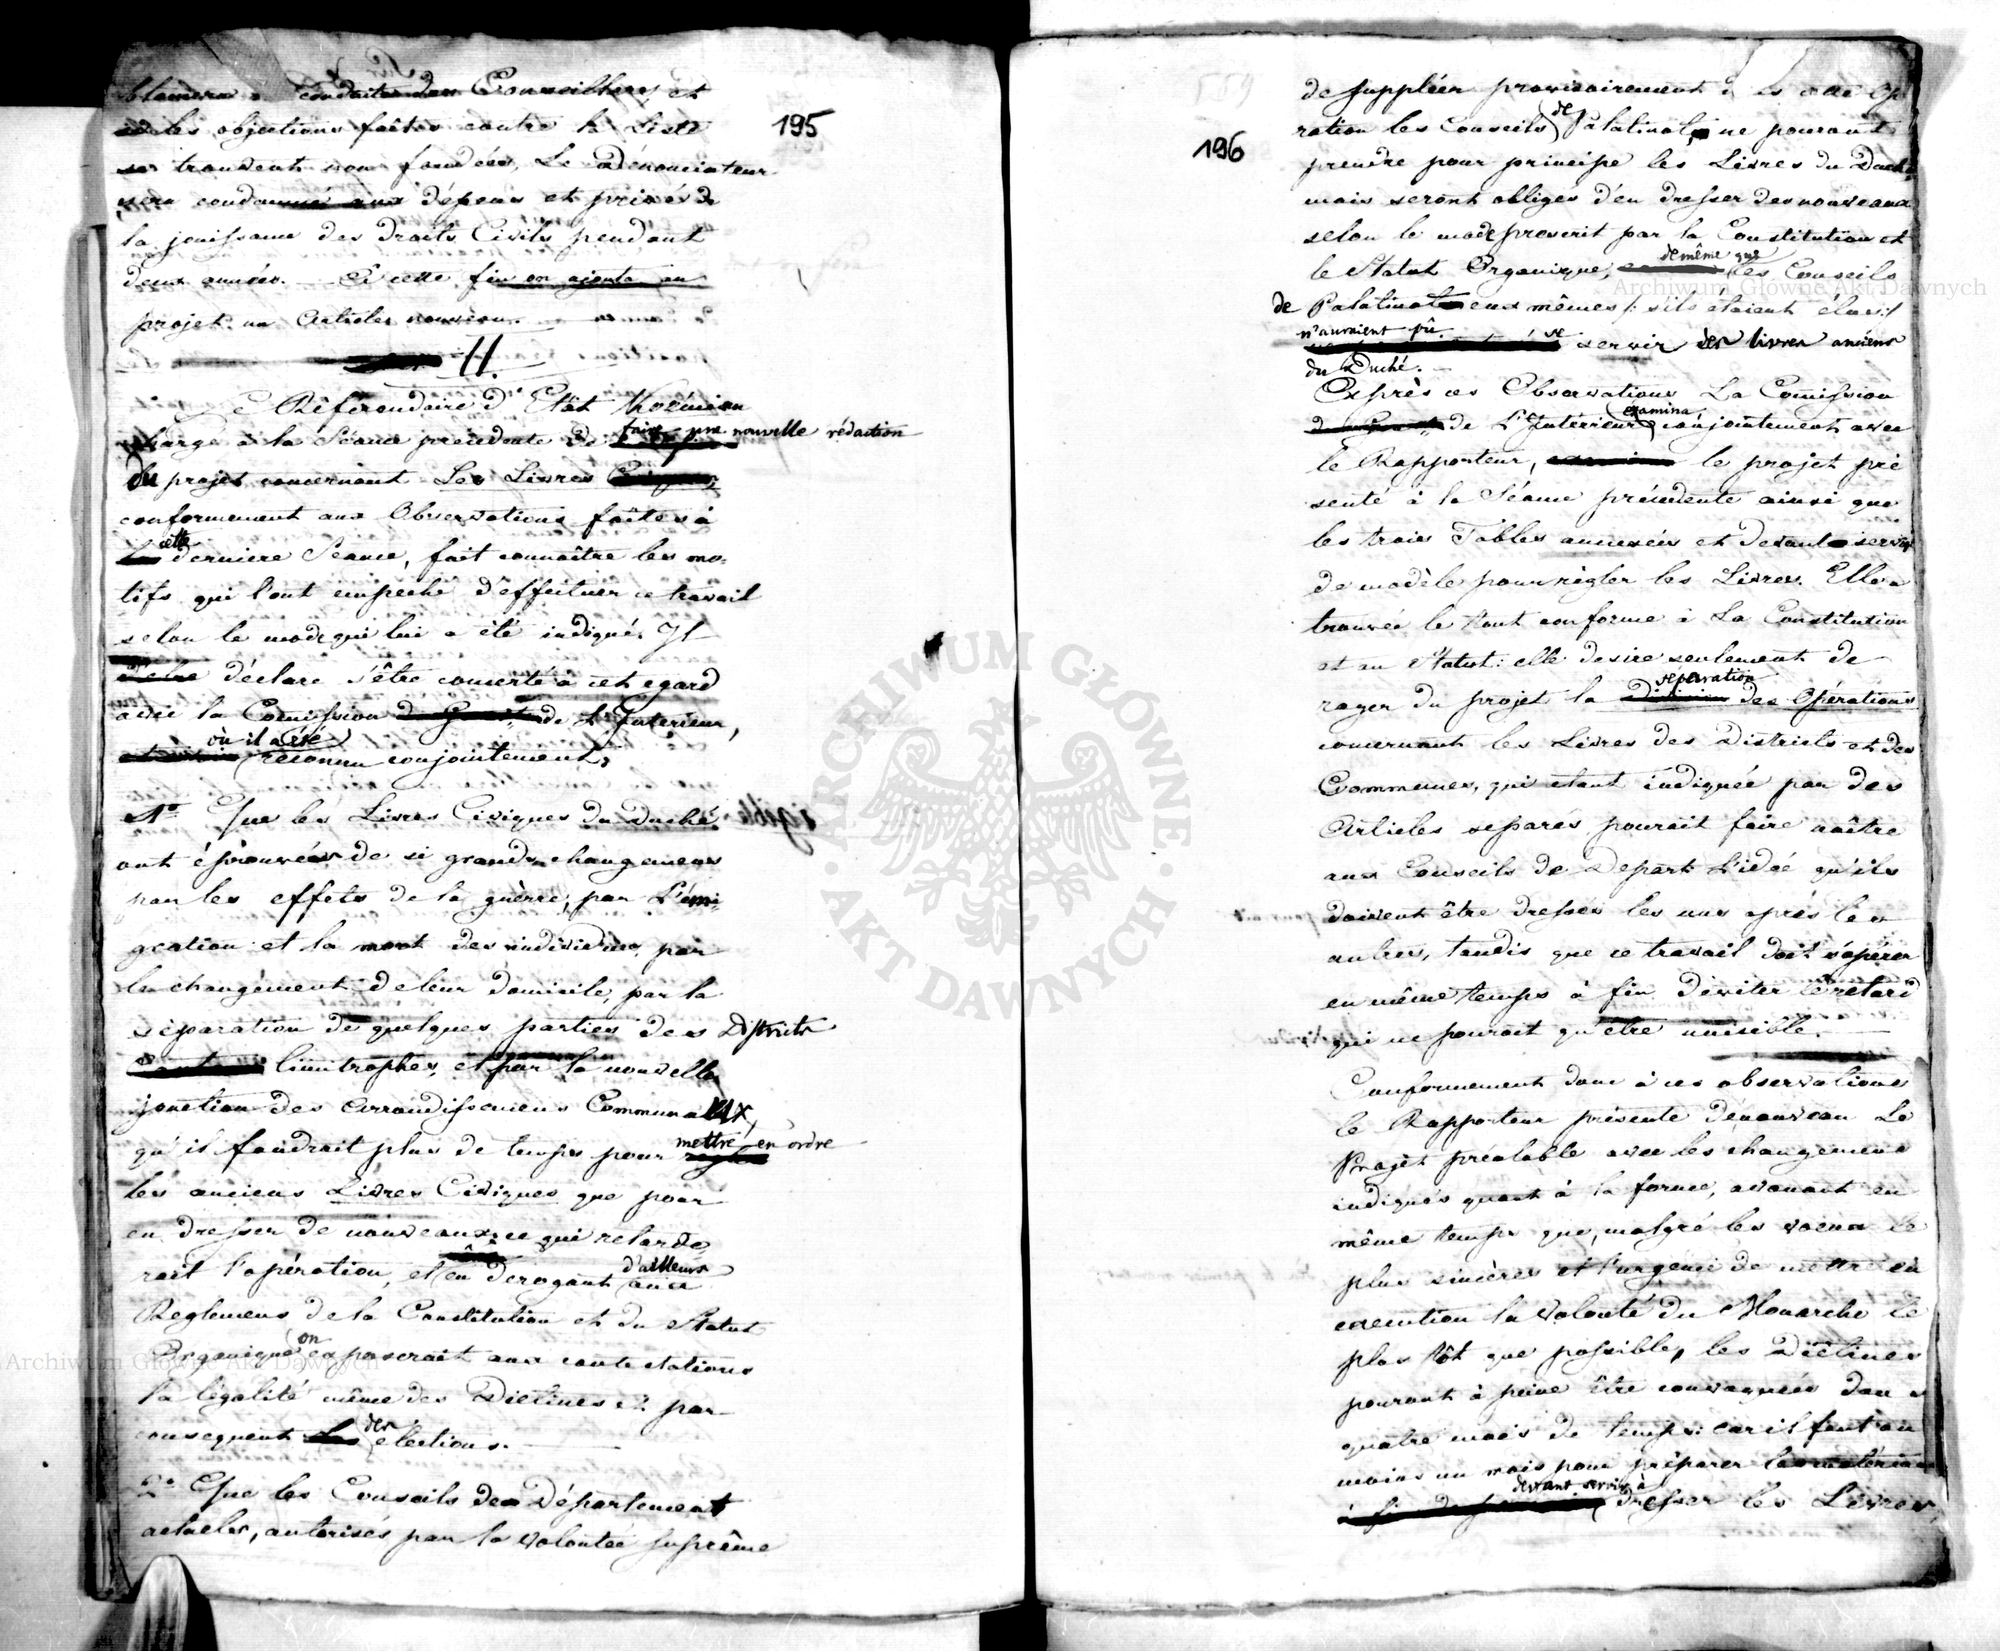 195
conduite des Conseillers, et
les objections faites contre la Liste
se trouvent non fondées, Le Dénonciateur
sera condamné aux dépens et privés de
la jouissance des Droits Civils pendant
deux années. — à cette fin on ajouta au
projet un Article nouveau.
II.
Le Référendaire d'Etat Koźmian
chargé à la Séance précédente de faire une nouvelle rédaction
du projet concernant Les Livres
conformement aux Observations faites à
cette derniere Séance, fait connaître les mo-
tifs qui l'ont empeché d'effectuer ce travail
selon le mode qui lui a été indiqué. Il
déclare s'être concerté à cet egard
avec la Comission de L'Interieur,
où il a été reconnu conjointement,
1° Que les Livres Civiques du Duché
ont éprouvées de si grands changemens
par les effets de la guèrre, par L'émi-
gration et la mort des individus, par
le changement de leur domicile, par la
séparation de quelques parties des Districts
limitrophes, et par la nouvelle
jonction des Arrondissemens Communaux,
qu'il faudrait plus de temps pour mettre en ordre
les anciens Livres Civiques que pour
en dresser de nouveaux, ce qui retarde-
rait l'opération, et en dérogant d'ailleurs aux
Reglemens de la Constitution et du Statut
Organique on exposerait aux contestations
la légalité même des Dietines et par
consequent des élections. —
2° Que les Conseils de Département
actuels, autorisés par la volontée suprême
196
de suppléer provisoirement
ration les Conseils de Palatinat, ne pourant
prendre pour principe les Livres du Duché,
mais seront obligés d'en dresser des nouveaux
selon le mode prescrit par la Constitution et
le Statut Organique, de même que les Conseils
de Palatinat eux mêmes /: s'ils étaient élus :/
n'auraient pû se servir des livres anciens
du Duché. —
Après ces Observations La Comission
de L'Interieur examina conjointement avec
le Rapporteur, le projet pré
senté à la Séance précédente ainsi que
les trois Tables annexées et devant servir
de modèle pour règler les Livres. Elle a
trouvée le tout conforme à La Constitution
et au Statut: elle desire seulement de
rayer du projet la séparation des Opérations
concernant les Livres des Districts et des
Communes, qui etant indiquée par des
Articles separés pourait faire naître
aux Conseils de Depart: L'idée qu'ils
doivent être dressés les uns après les
autres, tandis que ce travail doit s'opérer
en même temps à fin d'éviter le retard
qui ne pourait qu'être nuisible. —
Conformement donc à ces observations
le Rapporteur présente dénouveau Le
Projèt préalable avec les changemens
indiqués quant à la forme, avouant en
même temps que, malgré les voeux le
plus sincères et l'urgence de mettre en
execution la volonté du Monarche le
plus tôt que possible, les Diétines
pourant à peine être convoquées dans
quatre mois de temps: car il faut au
moins un mois pour préparer les matériaux
devant servir à dresser les Livres,
ARCHIWUM GŁÓWNE · AKT DAWNYCH ·
Archiwum Główne Akt Dawnych
Archiwum Główne Akt Dawnych